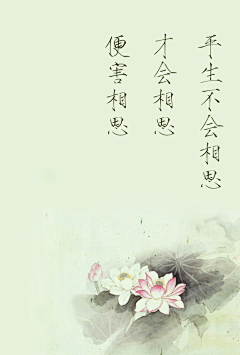 平生不会相思
才会相思
便害相思